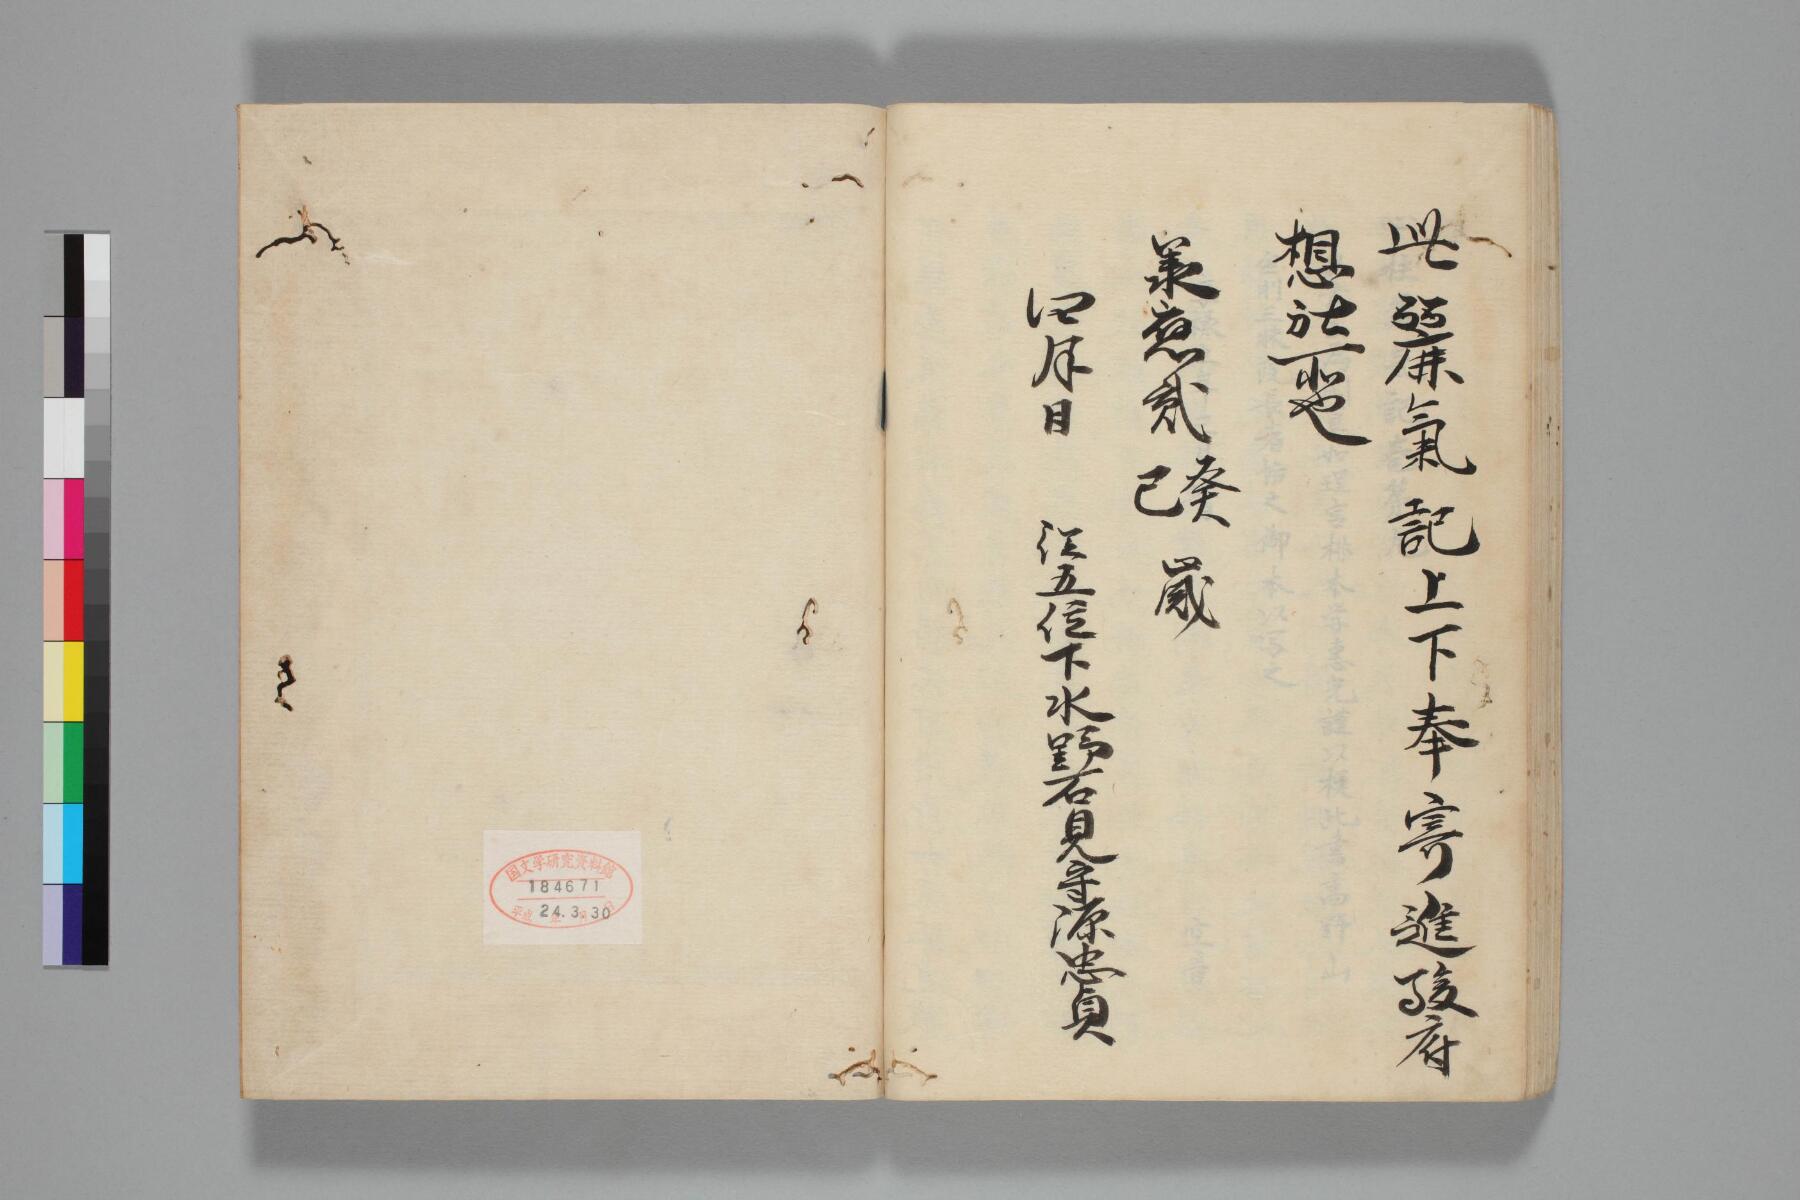 此麗氣記上下奉寄進駿府
想社所也
承應貳癸巳歳
四月日 従五位下水野石見守源忠貞
国文学研究資料館
184671
平成24.3.30